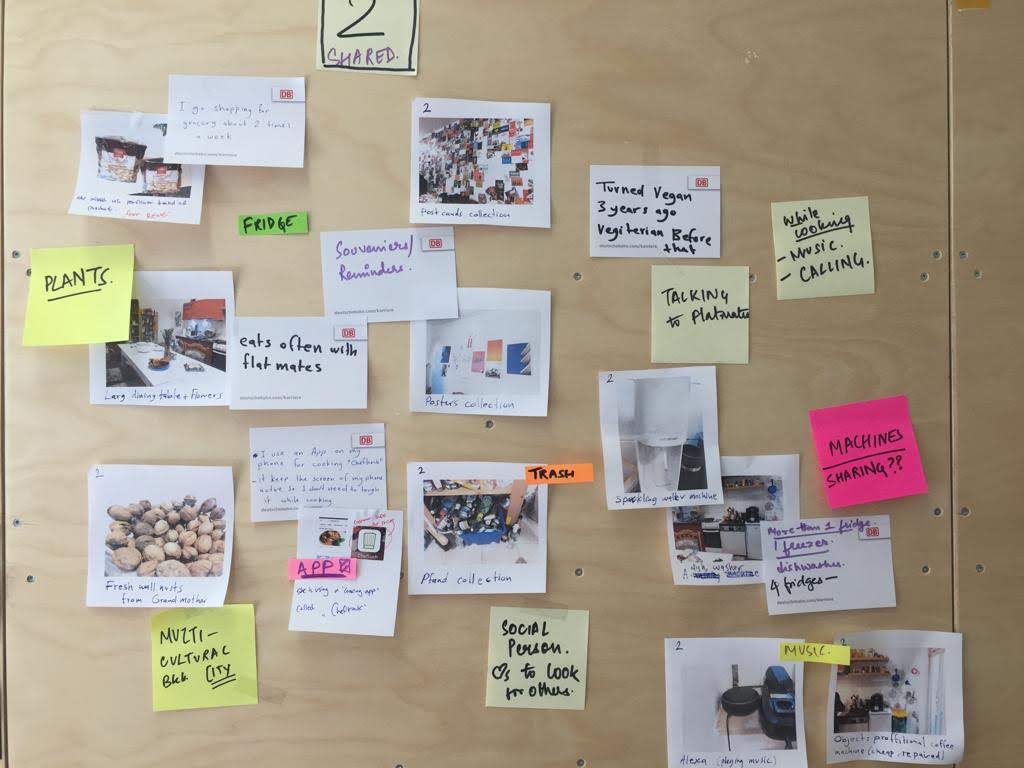 2
SHARED.
DB
I go shopping for
grocery about 2 times
a week
deutschebahn.com/karriere
FRIDGE
2
Postcards collection
DB
Turned Vegan
3 years ago
Vegiterian Before
that
deutschebahn.com/karriere
While
cooking
- MUSIC.
- CALLING.
PLANTS.
DB
Souveniers/
Reminders.
deutschebahn.com/karriere
TALKING
to flatmates
Larg dining table + flowers
DB
eats often with
flat mates
deutschebahn.com/karriere
Posters collection
2
Sparkling water machine
MACHINES
SHARING??
2
Fresh wall nuts
from Grandmother
DB
I use an App on my
phone for cooking "Cheftonk"
it keep the screen of my phone
active so I don't need to touch
it while cooking.
deutschebahn.com/karriere
APP
called
2
TRASH
Pfand collection
dish washer
DB
More than 1 fridge.
1 freezer.
dishwasher.
4 fridges—
deutschebahn.com/karriere
MULTI-
CULTURAL
CITY
SOCIAL
Person.
to look
for others.
2
Alexa (playing music)
MUSIC.
2
Objects proffitional coffee
machine (cheap, repaired)